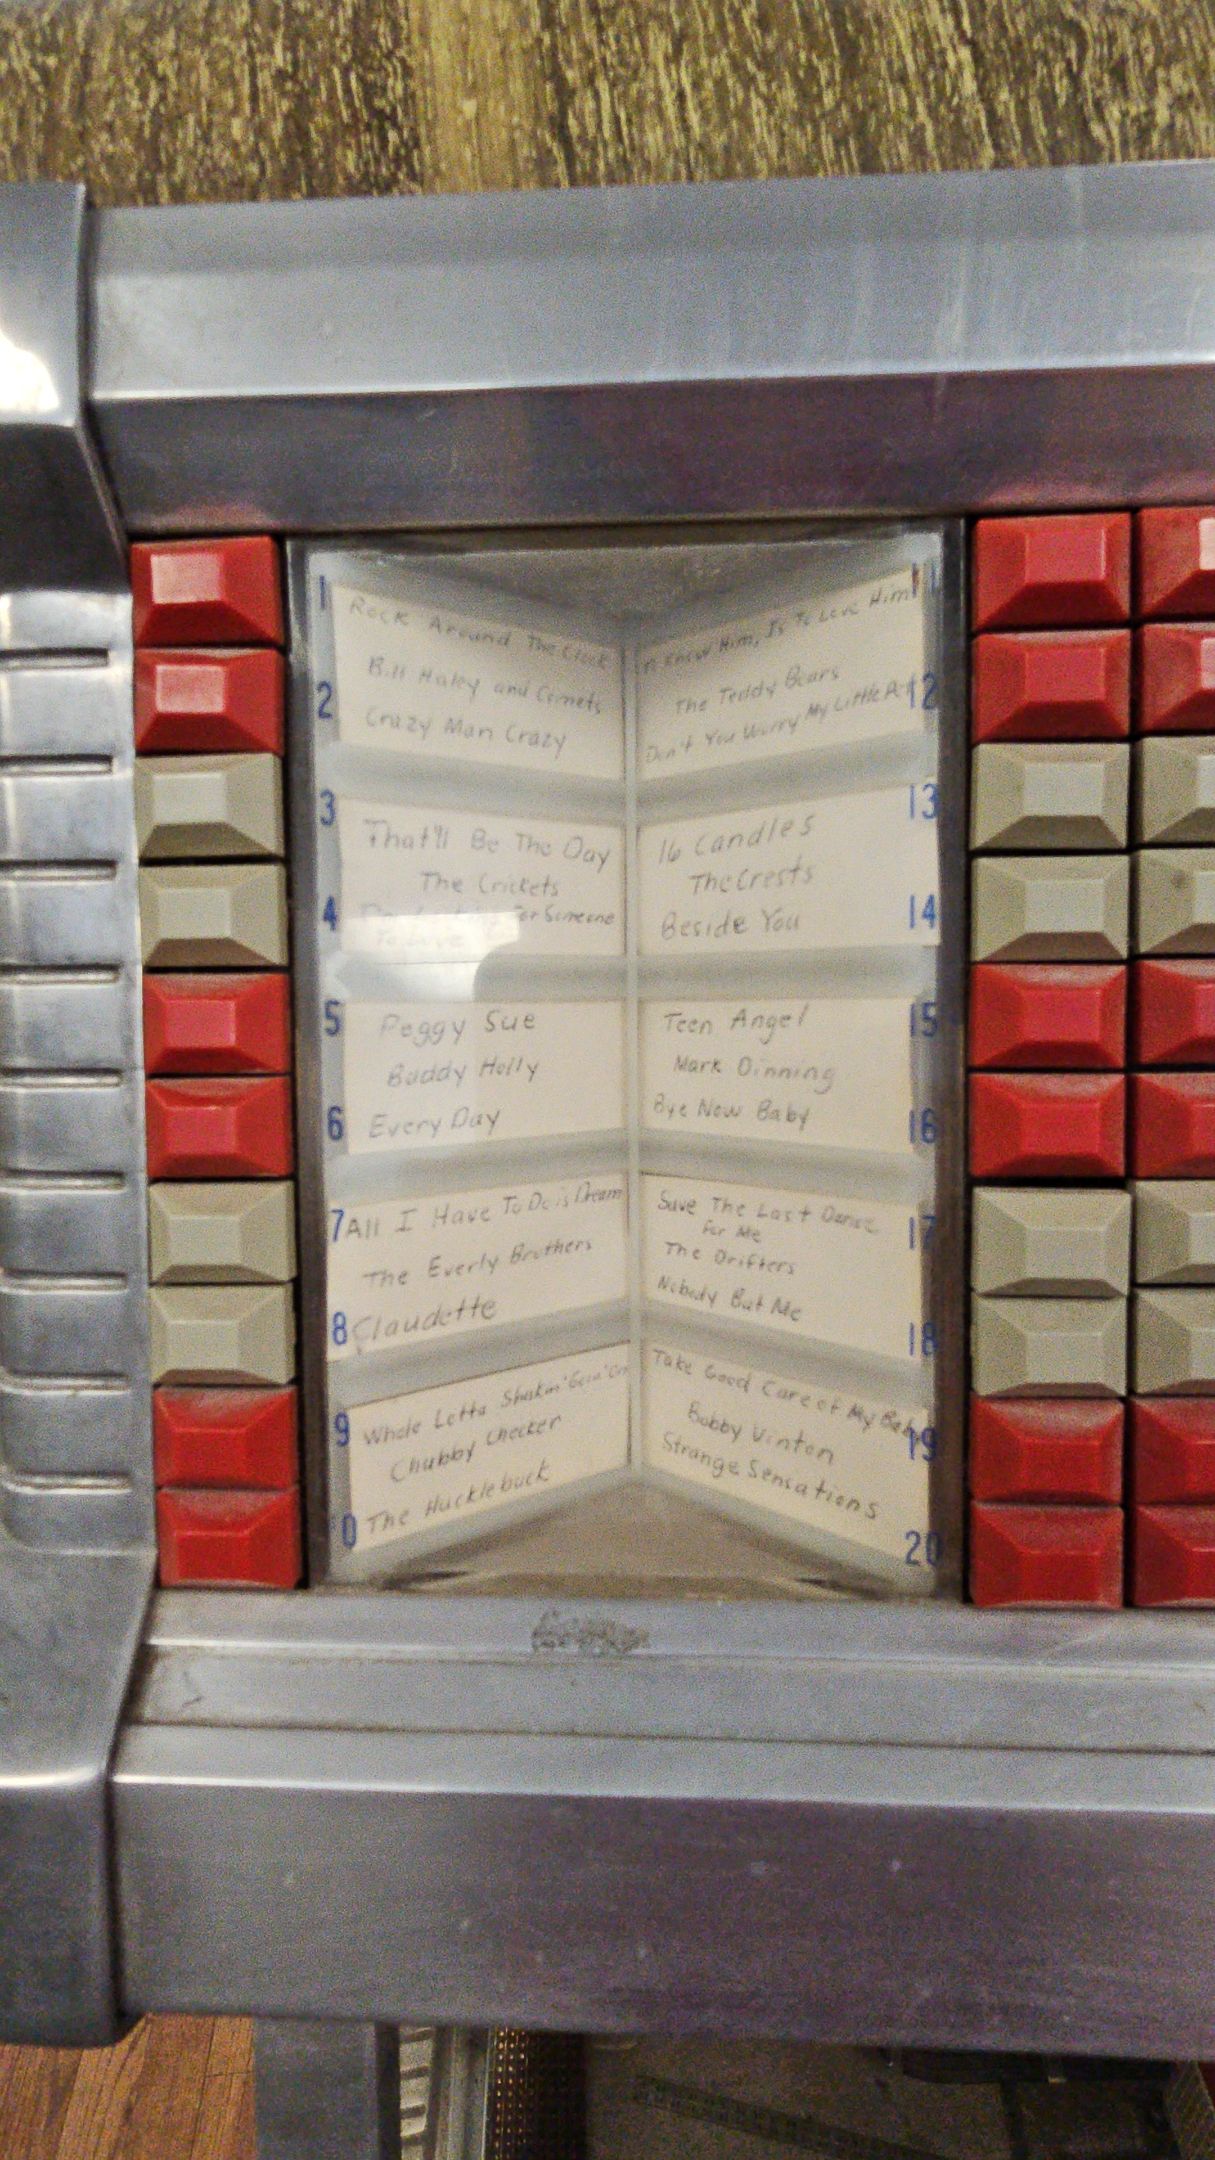 1
Rock Around The Clock
Bill Haley and Comets
2
Crazy Man Crazy
3
That'll Be The Day
The Crickets
4
For Someone
To Love
5
Peggy Sue
Buddy Holly
6
Every Day
7 All I Have To Do is Dream
The Everly Brothers
8 Claudette
9
Whole Lotta Shakin' Goin' On
Chubby Checker
0 The Hucklebuck
11
Know Him, Is To Love Him
The Teddy Bears
12
Don't You Worry My Little Pet
13
16 Candles
The Crests
14
Beside You
15
Teen Angel
Mark Dinning
16
Bye Now Baby
17
Save The Last Dance
For Me
The Drifters
Nobody But Me
18
Take Good Care of My Baby
19
Bobby Vinton
Strange Sensations
20